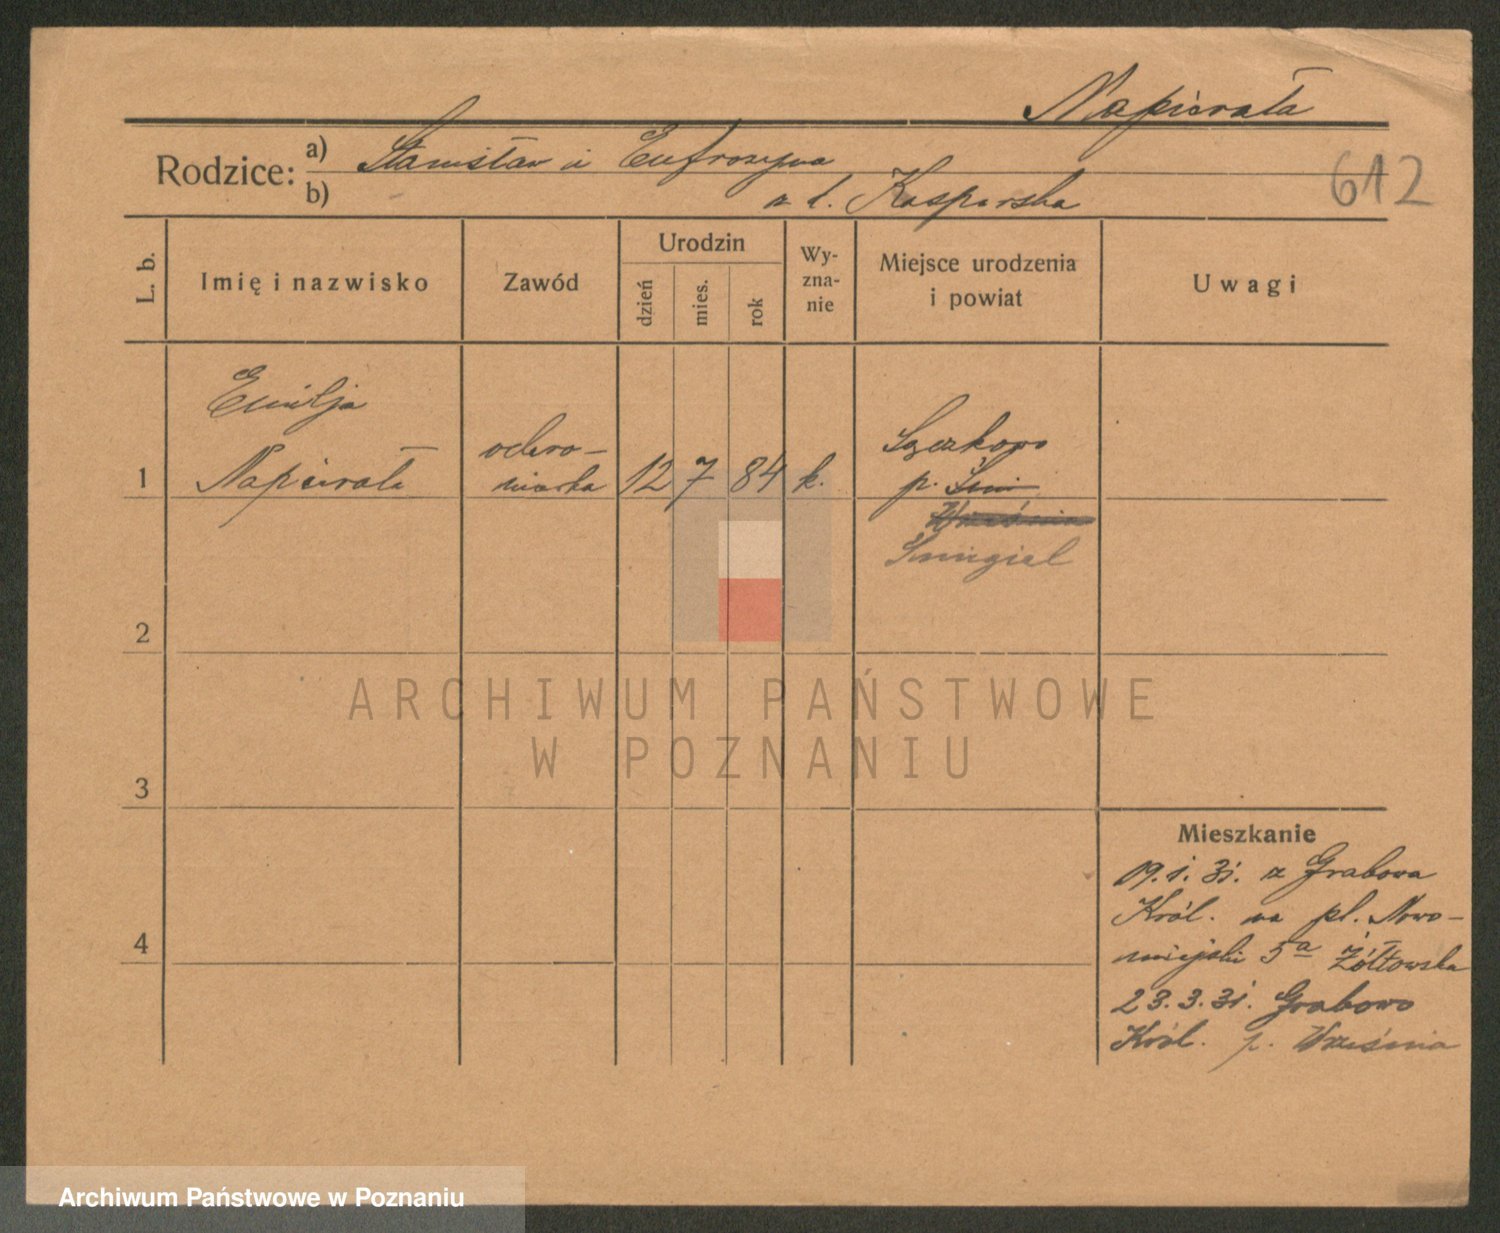 Napierała
Rodzice: a) Stanisław i Eufrozyna
b) z d. Kasperska
612
L. b.
Imię i nazwisko
Zawód
Urodzin
dzień
mies.
rok
Wy-
zna-
nie
Miejsce urodzenia
i powiat
Uwagi
1
Emilja
Napierała
ochro-
niarka
12
7
84
k.
Szczkowo
p. Śmi
Września
Śmigiel
2
3
4
ARCHIWUM PAŃSTWOWE
W POZNANIU
Mieszkanie
19.1.31. z Grabowa
Król. na pl. Nowo-
miejski 5a Żółtowska
23.3.31. Grabowo
Król. p. Września
Archiwum Państwowe w Poznaniu